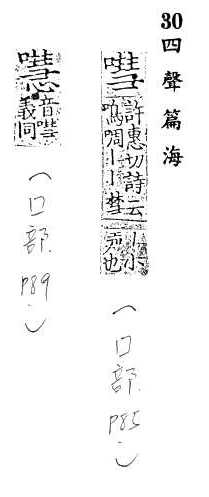 30 四聲篇海
嘒 許惠切詩云
鳴啁丨丨嘒丨小
也
(口部 P85.)
嚖 音嘒
義同
(口部 P89.)